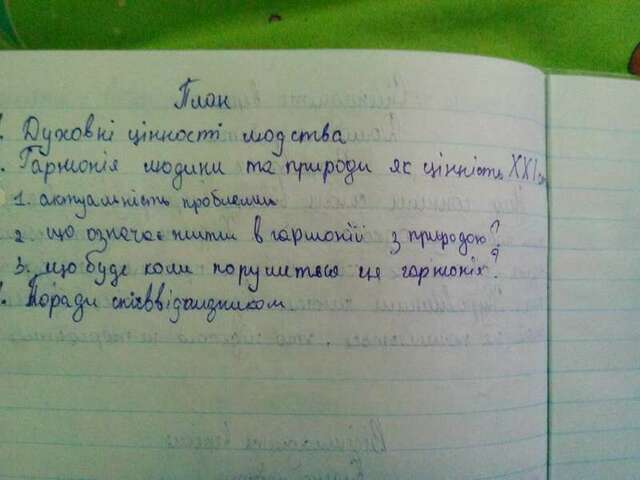 План
. Духовні цінності людства
. Гармонія людини та природи як цінність XXI ст
1. актуальність проблеми
2. що означає жити в гармонії з природою?
3. що буде коли порушиться ця гармонія?
. Поради